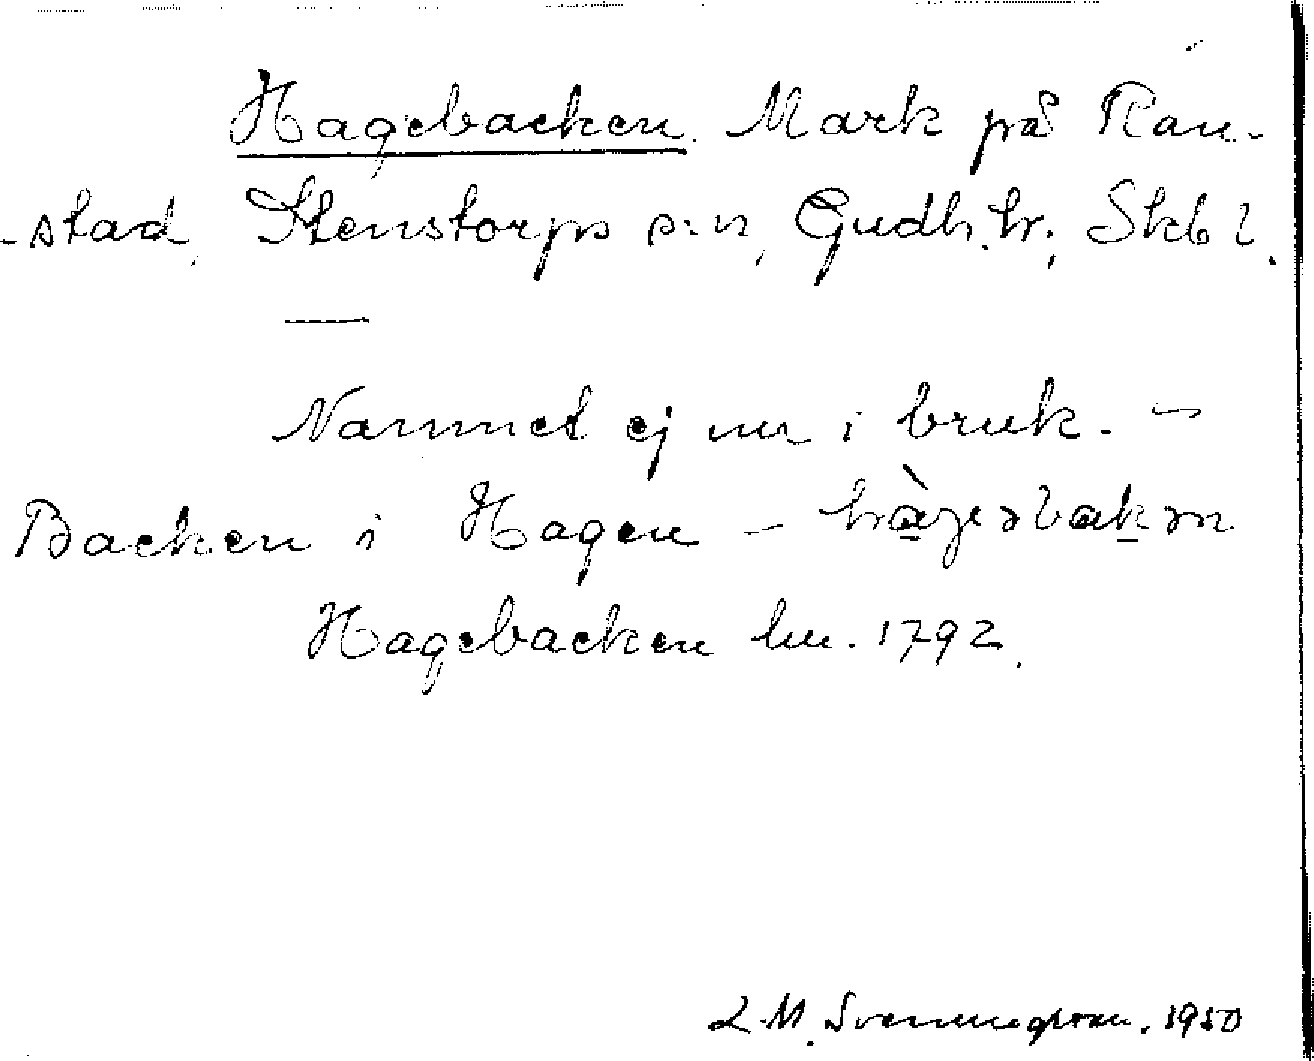 Hagebacken. Mark på Ran-
-stad, Stenstorps s:n, Gudh. hr; Skb l.
—
Namnet ej nu i bruk. —
Backen i Hagen —
Hagebacken hm. 1792.
L. M. Svenungsson. 1950